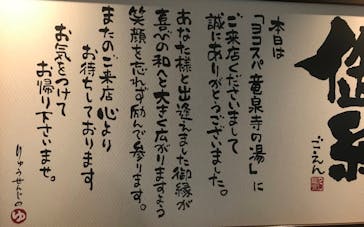 御縁
ごえん
本日は
「ヨコスパ 竜泉寺の湯」に
ご来店くださいまして
誠にありがとうございました。
あなた様と出逢えました御縁が
喜びの和へと大きく広がりますよう
笑顔を忘れず励んで参ります。
またのご来店 心より
お待ちしております
お気をつけて
お帰り下さいませ。
りゅうせんじの
ゆ